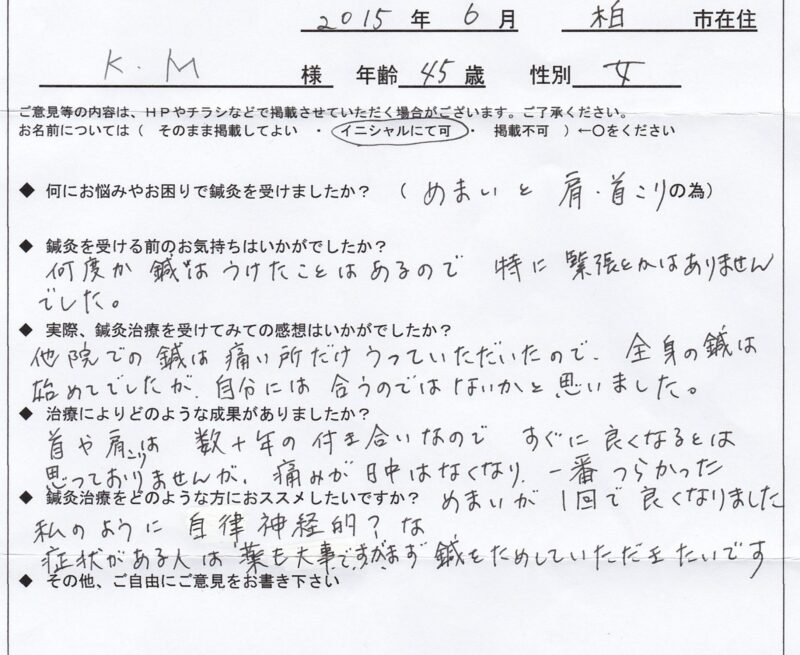 2015 年 6 月 柏 市在住
K.M 様 年齢 45 歳 性別 女
ご意見等の内容は、HPやチラシなどで掲載させていただく場合がございます。ご了承ください。
お名前については( そのまま掲載してよい ・ イニシャルにて可 ・ 掲載不可 )←○をください
◆ 何にお悩みやお困りで鍼灸を受けましたか? ( めまいと 肩・首こりの為)
◆ 鍼灸を受ける前のお気持ちはいかがでしたか?
何度か 鍼はうけたことはあるので 特に 緊張とかはありません
でした。
◆ 実際、鍼灸治療を受けてみての感想はいかがでしたか?
他院での鍼は痛い所だけうっていただいたので、全身の鍼は
始めてでしたが、自分には合うのではないかと思いました。
◆ 治療によりどのような成果がありましたか?
首や肩こりは 数十年の付き合いなので すぐに良くなるとは
思っておりませんが、痛みが日中はなくなり、一番つらかった
めまいが 1回で良くなりました
◆ 鍼灸治療をどのような方におススメしたいですか?
私のように 自律神経的?な
症状がある人は 薬も大事ですが、まず 鍼をためしていただきたいです
◆ その他、ご自由にご意見をお書き下さい